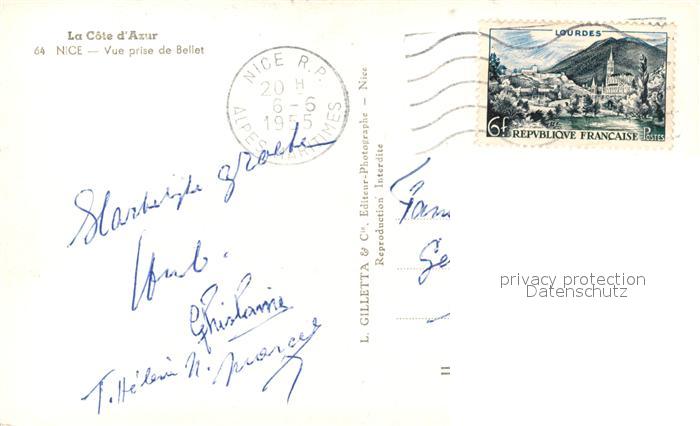 La Côte d'Azur
64 NICE — Vue prise de Bellet
NICE R.P.
20 H
6 - 6
1955
ALPES MARITIMES
LOURDES
6f REPVBLIQVE FRANÇAISE POSTES
Hartelijke groeten
Ghislaine
T. Hélène N. Marcel
L. GILLETTA & Cie, Editeur-Photographe — Nice
Reproduction Interdite
Fam
Ge
privacy protection
Datenschutz